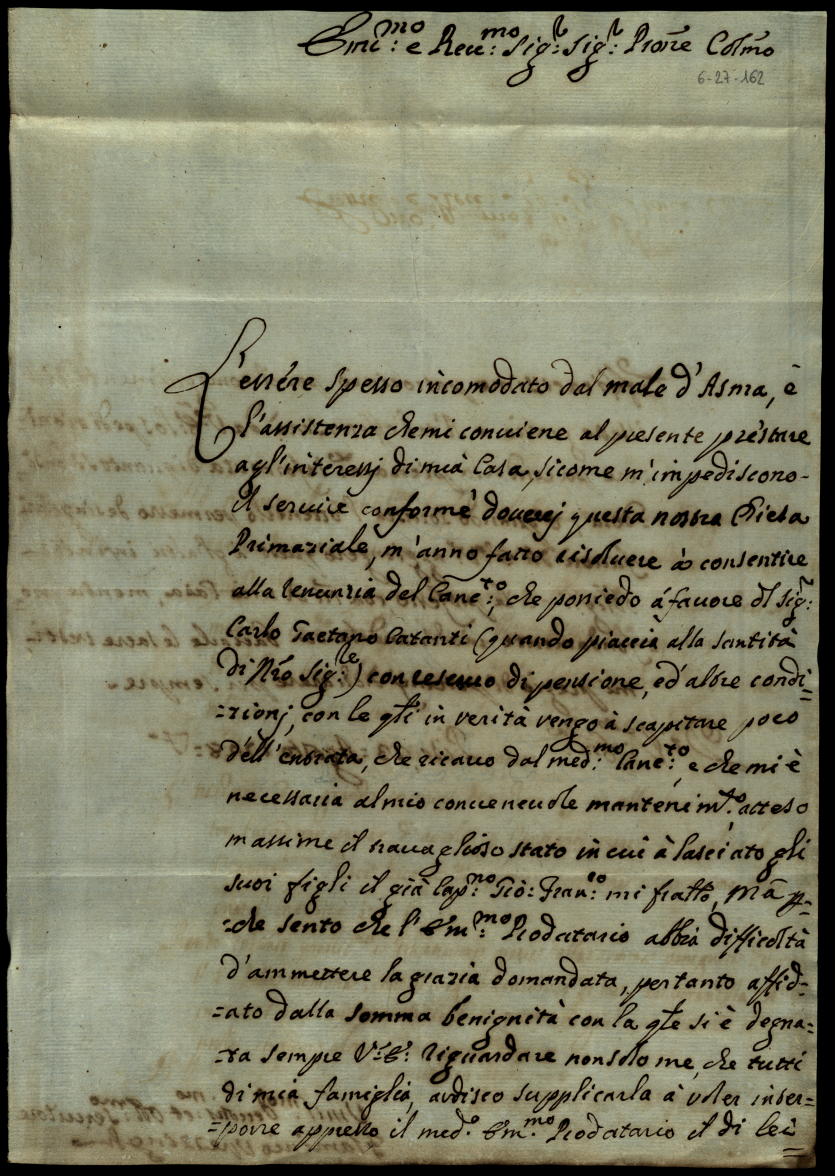 Emi:mo e Reu:mo Sig:r Sig:r Prone Colmo
6-27-162
L'essere spesso incomodato dal male d'Asma, è
l'assistenza che mi conviene al presente prestare
agl'interessj di mià Casa, sicome m'impediscono
il servire conforme doverej questa nostra Chiesa
Primaziale, m'anno fatto risoluere à consentire
alla renunzia del Cane:to, che poniedo á fauore dl sig:r
Carlo Gaetano Catanti (quando piaccia alla santità
di Nro sig:re) con reseruo di pensione, ed'altre condi=
=zionj, con le qlj in verità vengo à scapitare poco
dell'entrata, che ricauo dal med:mo Cane:to, e che mi è
necessaria al mio conueneuole mantenim:to, atteso
massime il trauaglioso stato in cui à lasciato gli
suoi figli il già Cap:no Gio: Fran:co mi fratto, Mà p=
=che sento che l'Em:mo Prodatario abbia difficoltà
d'ammettere la grazia domandata, pertanto affid=
=ato dalla somma benignità con la qle si è degna=
=ta sempre V:E: riguardare non solo me, che tutti
di mià famiglia, ardisco supplicarla à voler inter=
=porre appresso il med:o Em:mo Prodatario il di lei